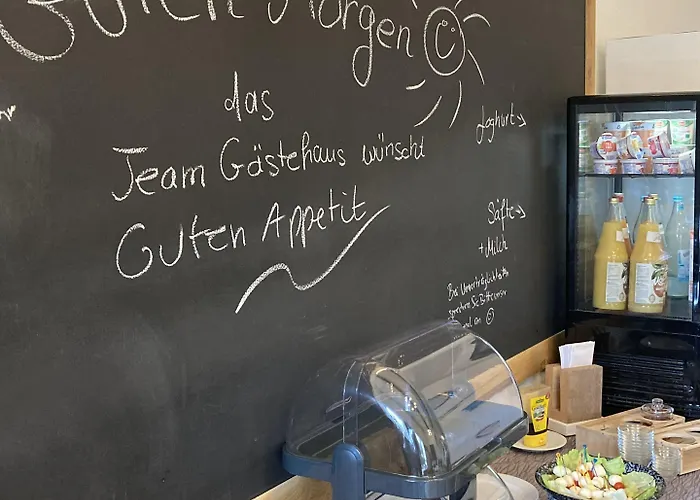 Guten Morgen
das
Team Gästehaus wünscht
Guten Appetit
Joghurt →
Säfte →
+ Milch
Bei Unverträglichkeiten
sprechen Sie Bitte uns
an ☺